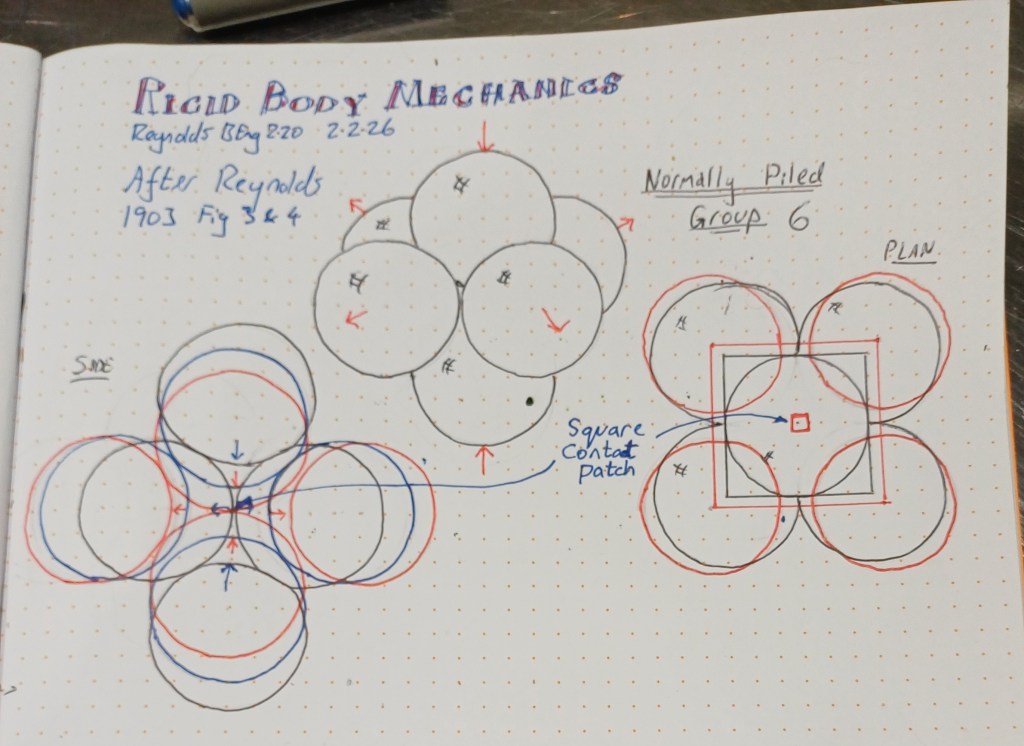 RIGID BODY MECHANICS
Reynolds BEng 2.20 2.2.26
After Reynolds
1903 Fig 3 & 4
Normally Piled
Group 6
PLAN
SIDE
Square
Contact
patch